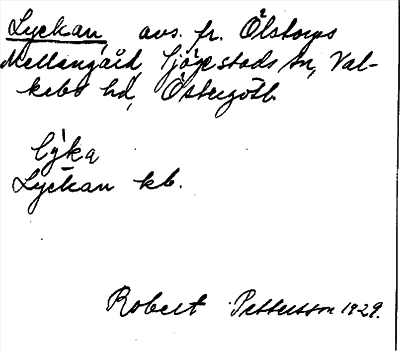 Lyckan, avs. fr. Ölstorps
Mellangård, Sjögestads sn, Val-
kebo hd, Östergötl.
lýka
Lyckan kb.
Robert Pettersson 1929.